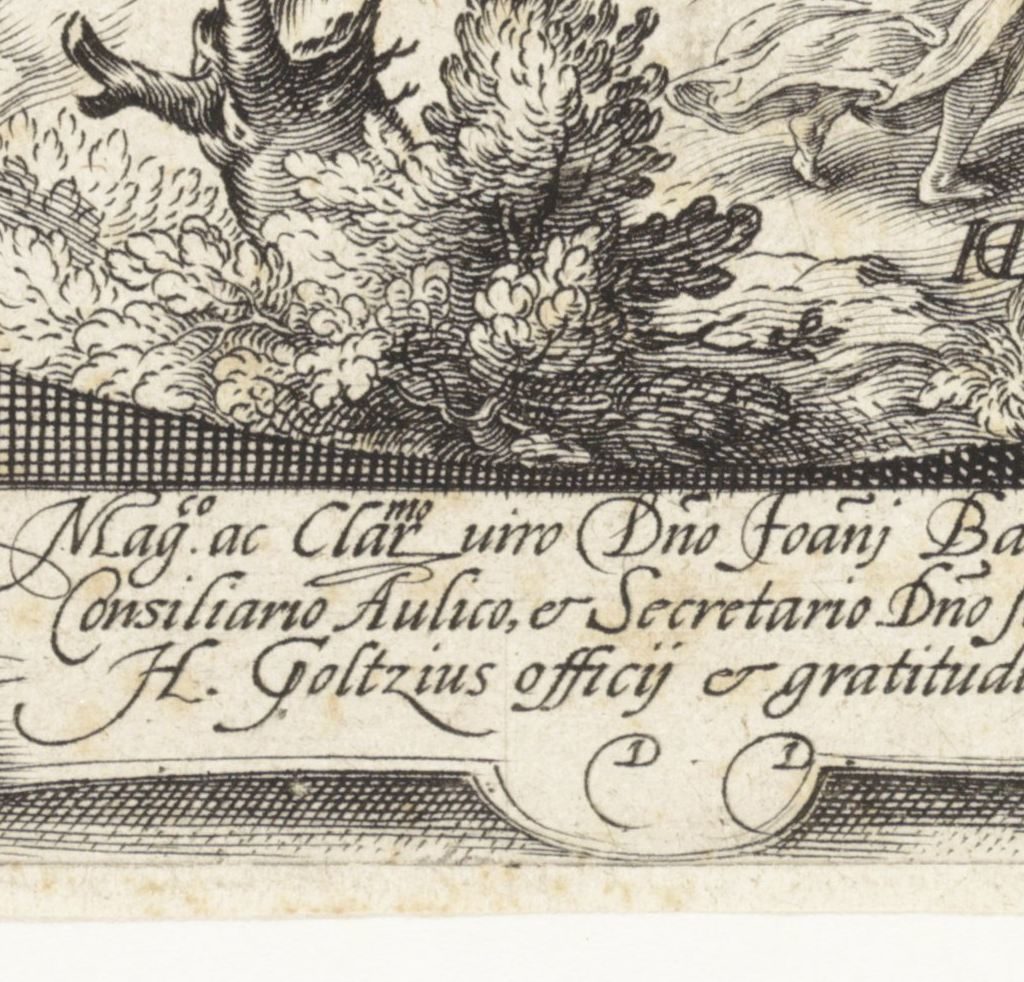 Mag.co ac Clarmo uiro Dño Joañj Ba
Consiliario Aulico, et Secretario Dño
H. Goltzius officij et gratitudi
D D